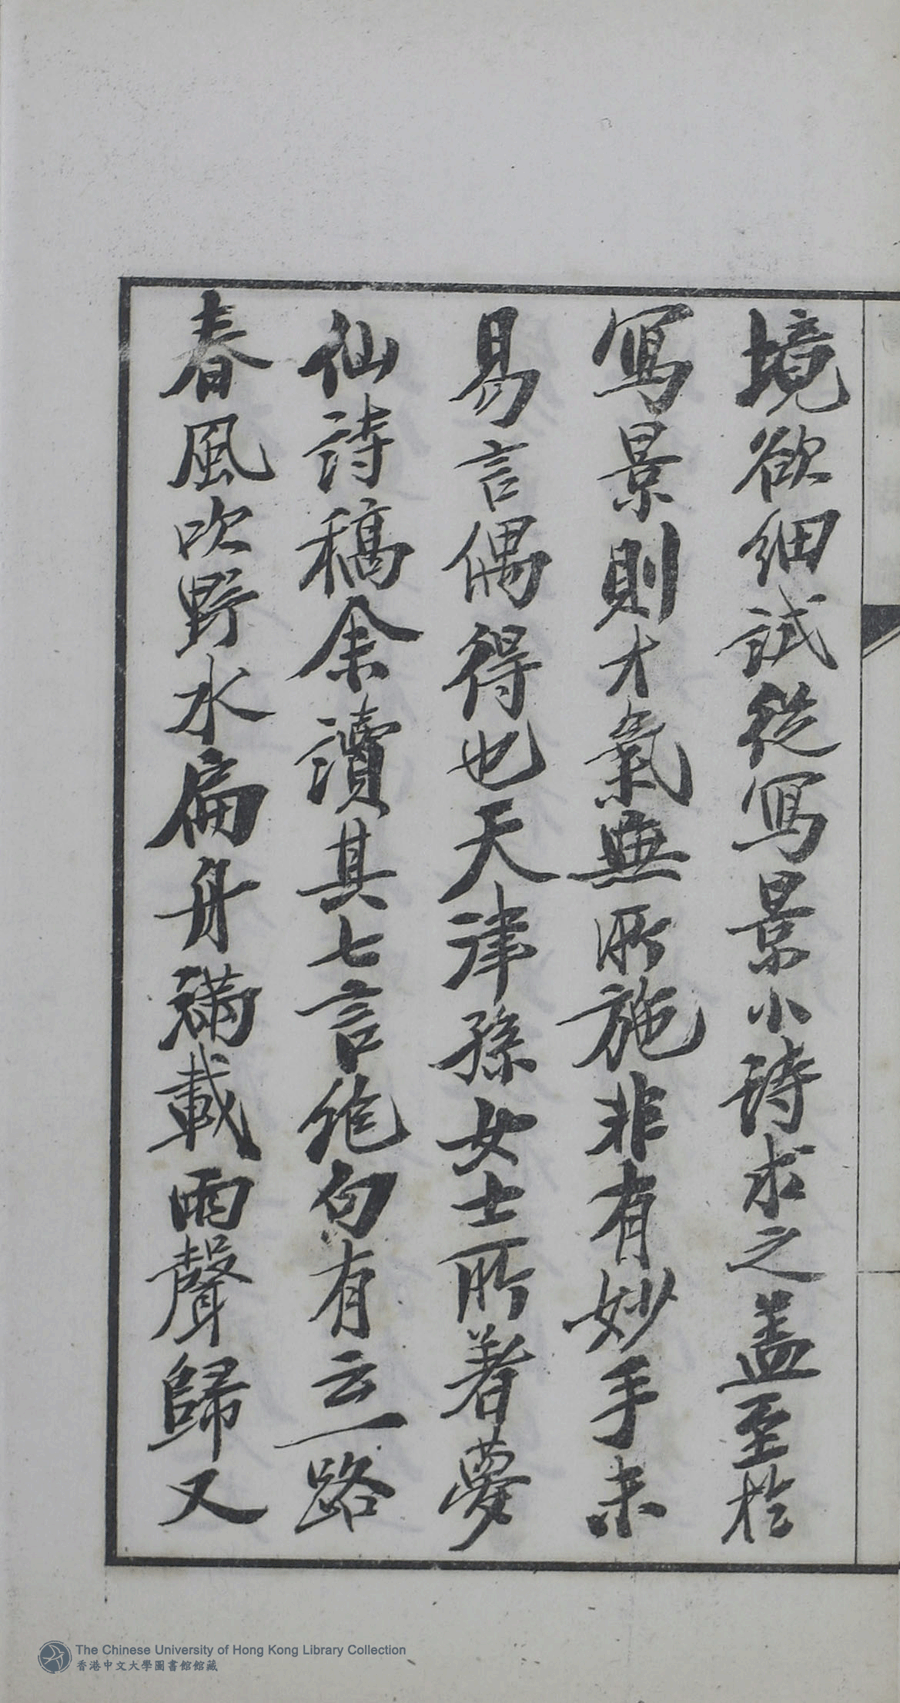 境欲細試從寫景小詩求之盖至於
寫景則才氣無所施非有妙手未
易言偶得也天津孫女士所著夢
仙詩稿余讀其七言絶句有云一路
春風吹野水扁舟滿載雨聲歸又
The Chinese University of Hong Kong Library Collection
香港中文大學圖書館館藏